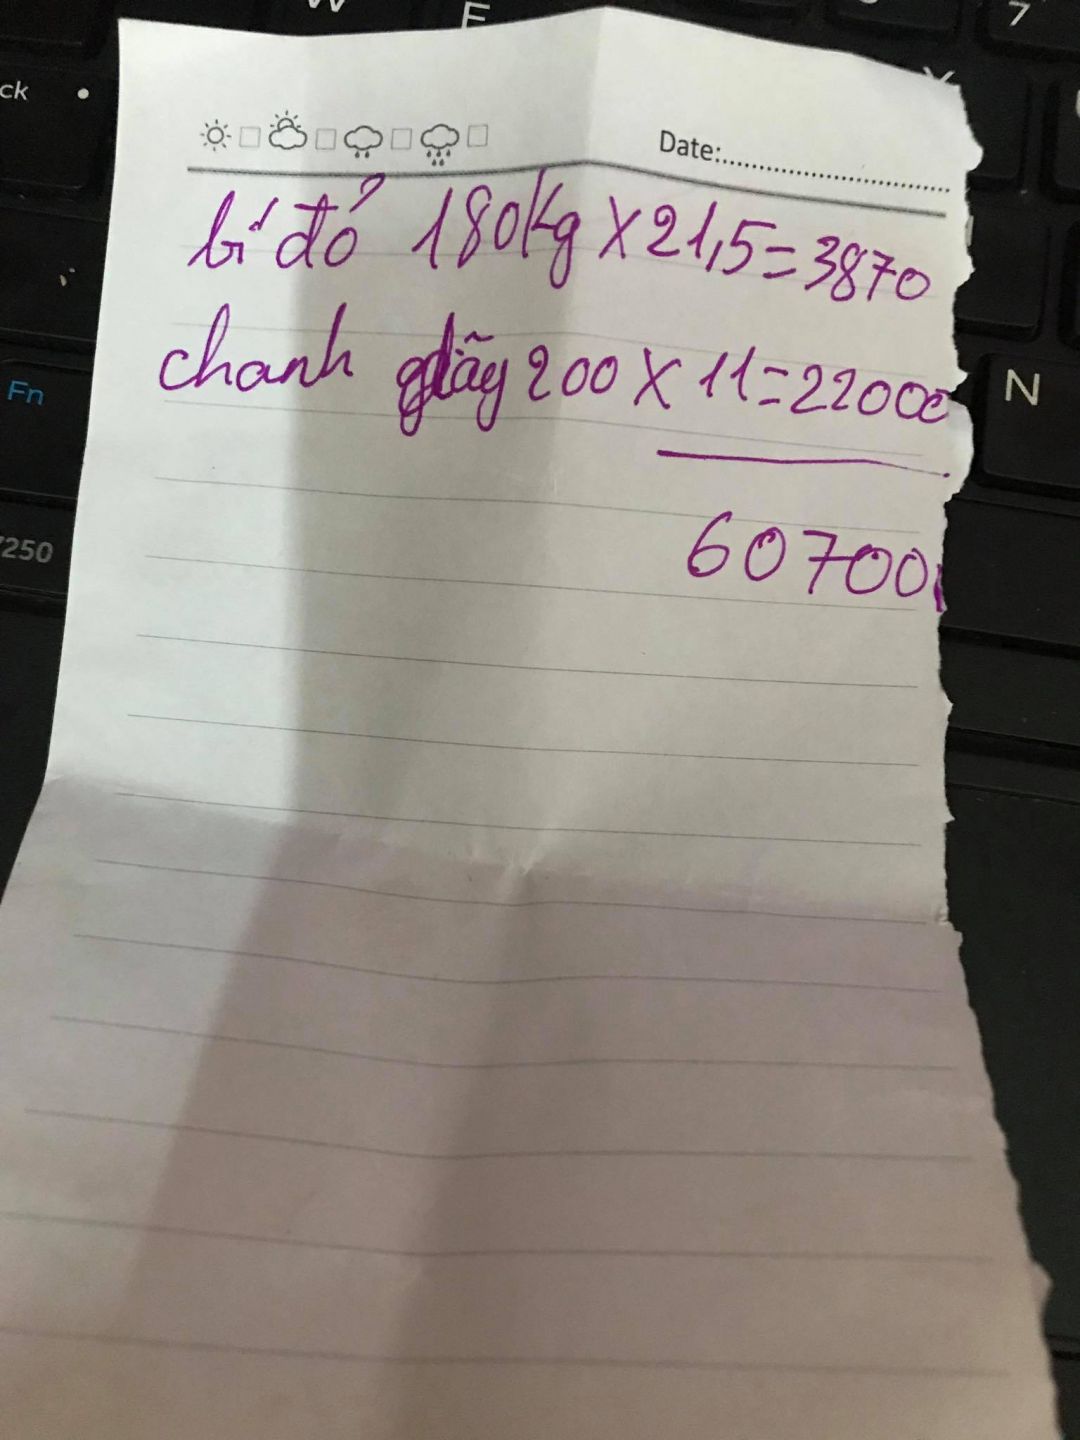 W E 7
ck Y
Date:
bí đỏ 180kg X 21,5 = 3870
chanh dãy 200 X 11 = 22000
Fn N
60700
7250